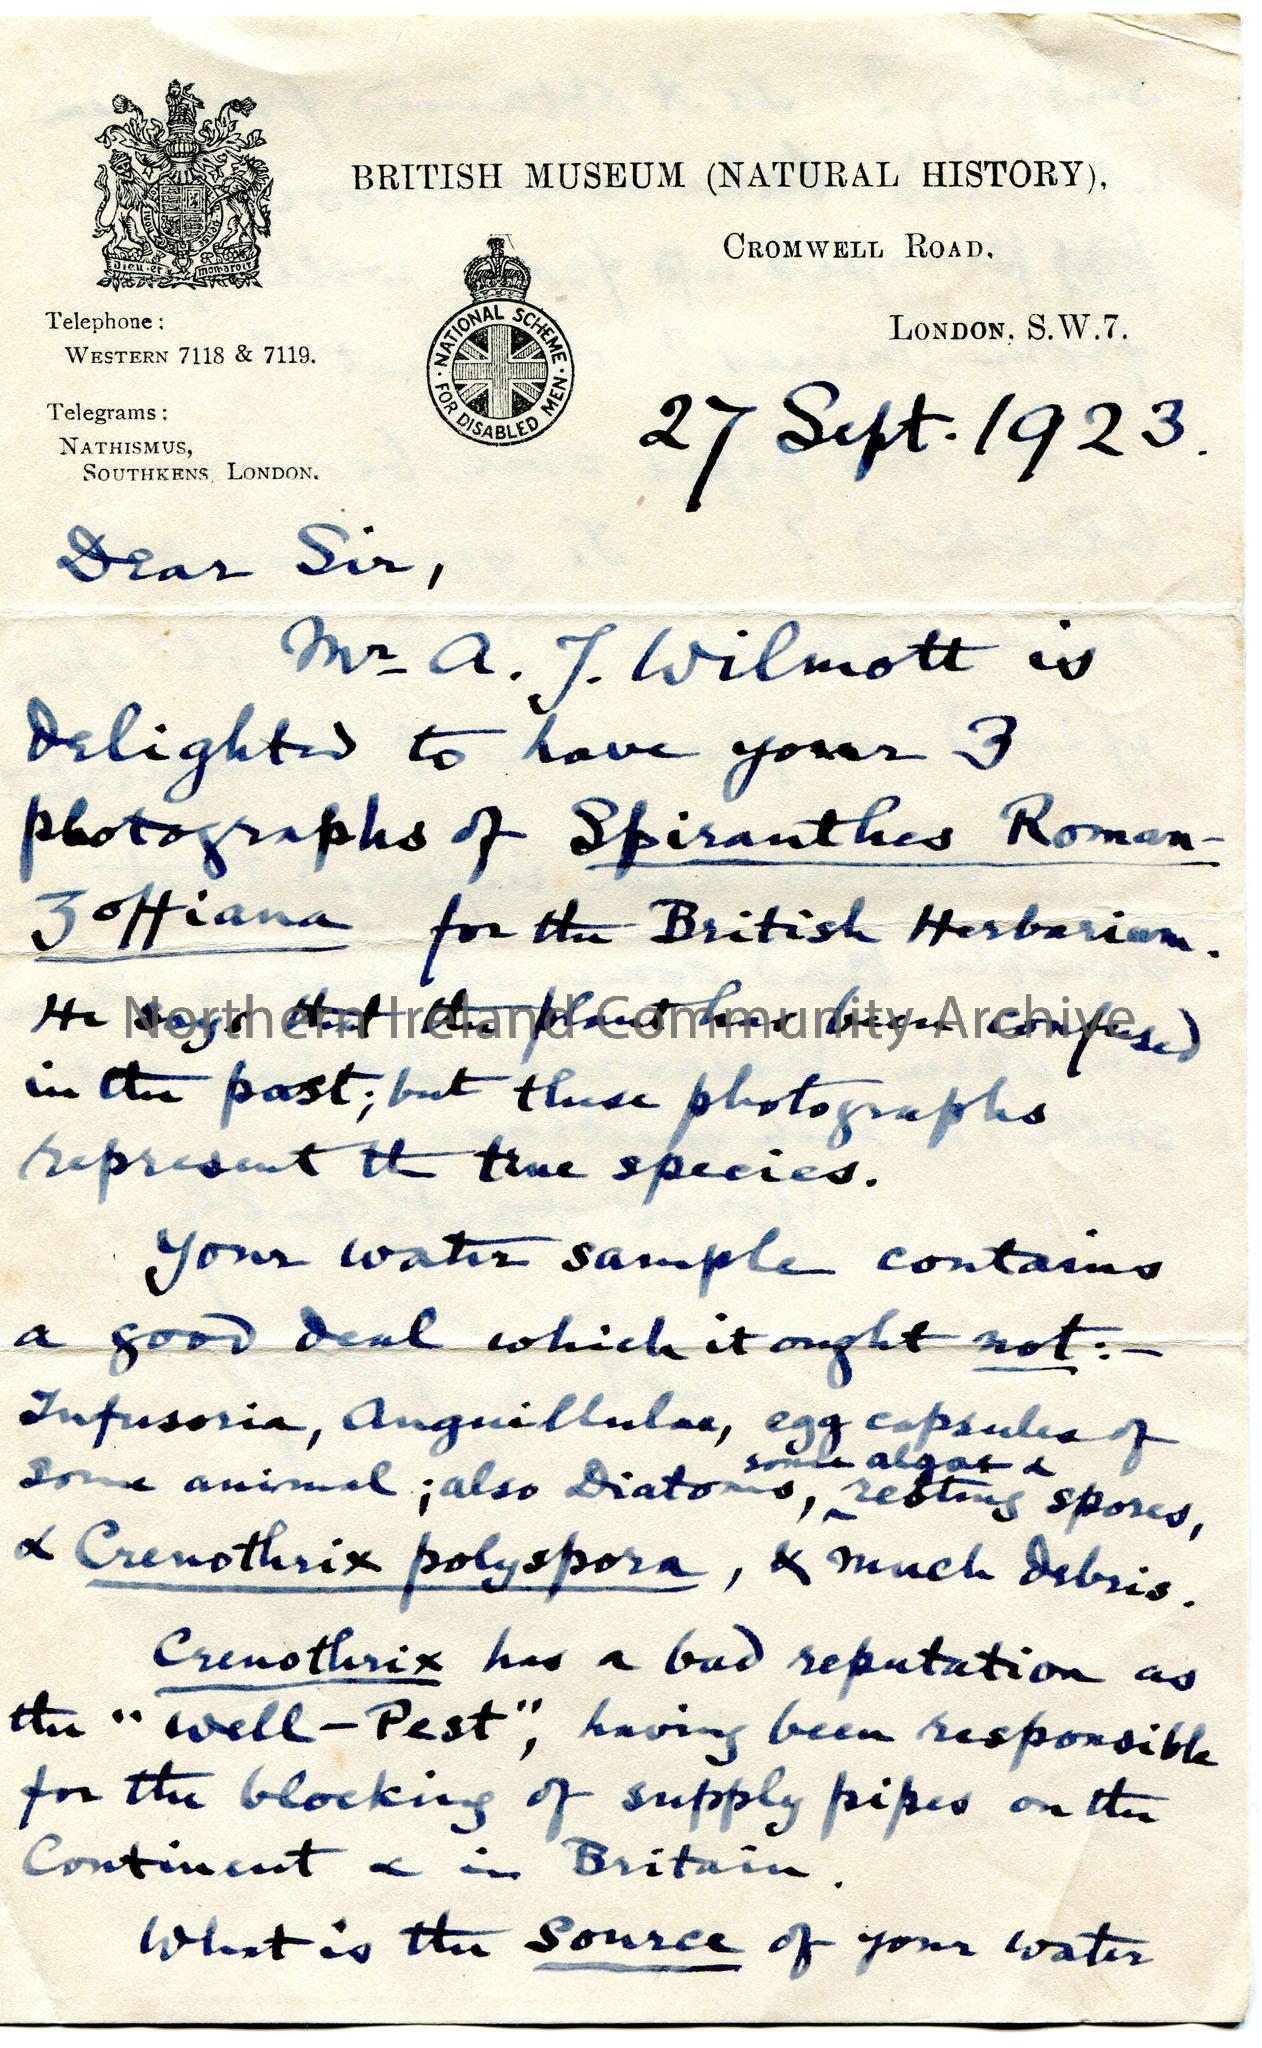 BRITISH MUSEUM (NATURAL HISTORY),
CROMWELL ROAD,
LONDON, S.W.7.
DIEU ET MON DROIT
Telephone:
WESTERN 7118 & 7119.
Telegrams:
NATHISMUS,
SOUTHKENS, LONDON.
· NATIONAL SCHEME · FOR DISABLED MEN
27 Sept. 1923.
Dear Sir,
Mr A. J. Wilmott is
delighted to have your 3
photographs of Spiranthes Roman-
zoffiana for the British Herbarium.
He says that the plant has been confused
Northern Ireland Community Archive
in the past; but these photographs
represent the true species.
Your water sample contains
a good deal which it ought not:-
Infusoria, Anguillulae, egg capsules of
some algae &
some animal; also Diatoms, ‸ resting spores,
& Crenothrix polyspora, & much debris.
Crenothrix has a bad reputation as
the "Well-Pest", having been responsible
for the blocking of supply pipes on the
Continent & in Britain.
What is the Source of your water